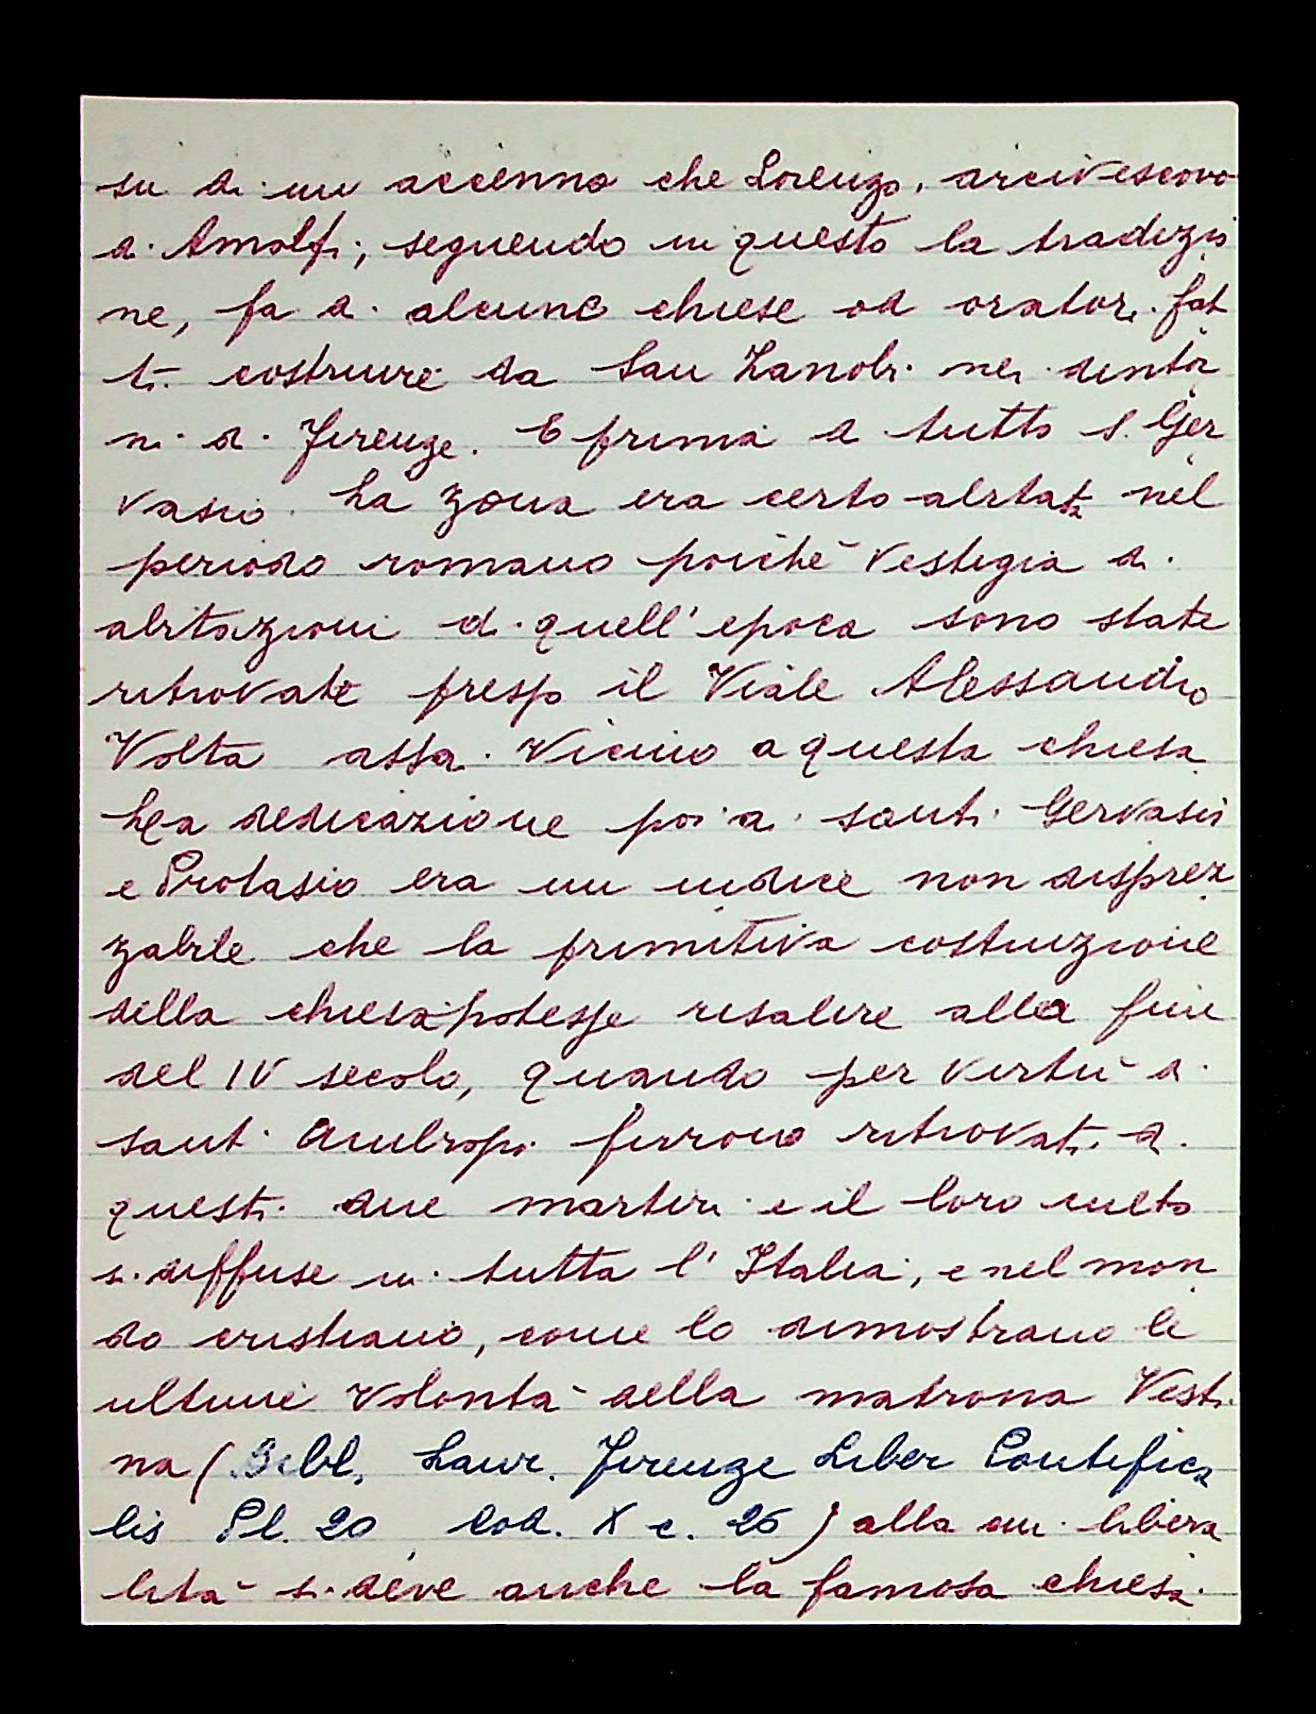 su di un accenno che Lorenzo, arcivescovo
di Amalfi, seguendo in questo la tradizio
ne, fa di alcune chiese od oratori fat
ti costruire da San Zanobi nei dintor
ni di Firenze. E prima di tutto S. Ger
vasio. La zona era certo abitata nel
periodo romano poichè vestigia di
abitazioni di quell' epoca sono state
ritrovate presso il Viale Alessandro
Volta assai vicino a questa chiesa
La dedicazione poi ai santi Gervasio
e Protasio era un indice non disprez
zabile che la primitiva costruzione
della chiesa potesse risalire alla fine
del IV secolo, quando per virtù di
sant' Ambrogio furono ritrovati i
questi due martiri e il loro culto
si diffuse in tutta l' Italia, e nel mon
do cristiano, come lo dimostrano le
ultime volontà della matrona Vesti
na (Bibl. Laur. Firenze Liber Pontifica
lis Pl. 20, Cod. X c. 26) alla cui libera
lità si deve anche la famosa chiesa